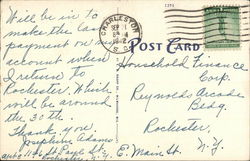 Will be in to
make the last
payment on my
account when
I return to
Rochester. Which
will be around
the 30th.
Thank you.
Josephine Adams
Rochester, N.Y.
CHARLESTON
S.C.
POST CARD
Household Finance
Corp.
Reynolds Arcade
Bldg.
Rochester,
E. Main St. N.Y.